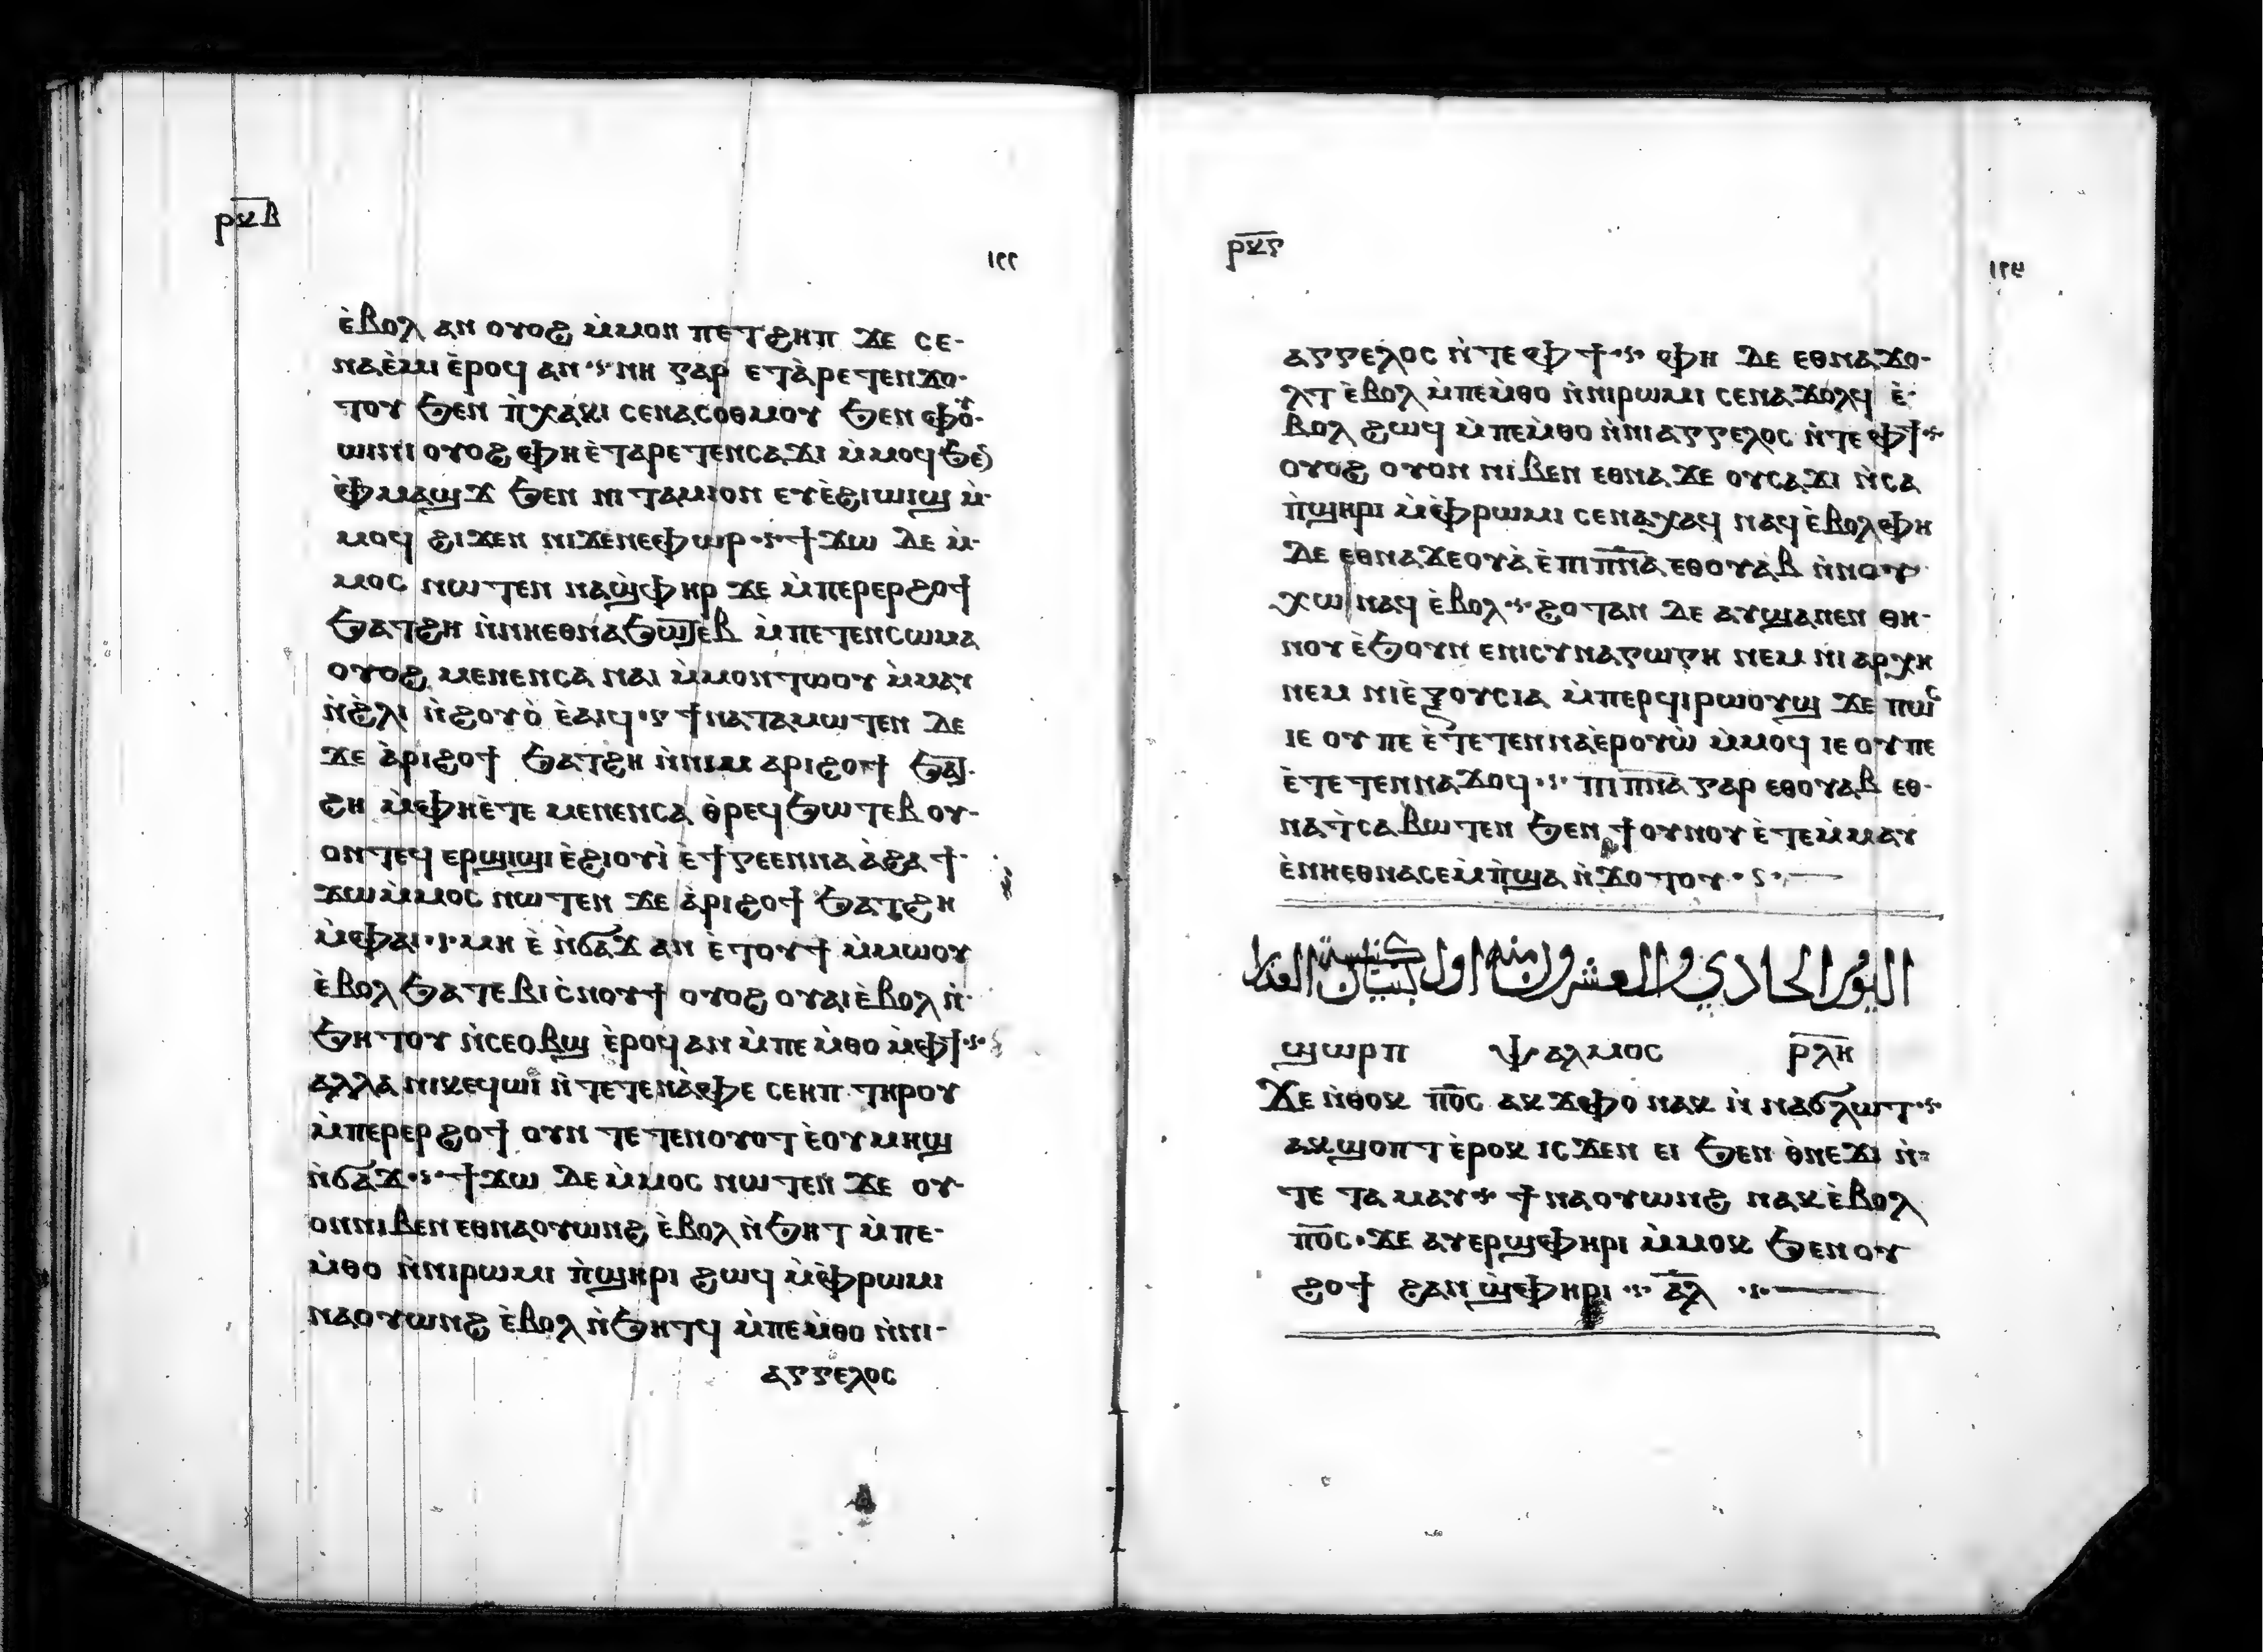 ⲣⲕⲃ
١٢٢
ⲉ̀ⲃⲟⲗ ⲁⲛ ⲟⲩⲟϩ ⲙ̀ⲙⲟⲛ ⲡⲉⲧϩⲏⲡ ϫⲉ ⲥⲉ-
ⲛⲁⲉ̀ⲙⲓ ⲉ̀ⲣⲟϥ ⲁⲛ ⲛⲏ ⲅⲁⲣ ⲉⲧⲁ̀ⲣⲉⲧⲉⲛϫⲟ-
ⲧⲟⲩ ϧⲉⲛ ⲡ̀ⲭⲁⲕⲓ ⲥⲉⲛⲁⲥⲟⲑⲙⲟⲩ ϧⲉⲛ ⲫⲟⲩ-
ⲱⲓⲛⲓ ⲟⲩⲟϩ ⲫⲏⲉ̀ⲧⲁⲣⲉⲧⲉⲛⲥⲁϫⲓ ⲙ̀ⲙⲟϥ ϧⲉⲛ
ⲉ̀ⲫⲙⲁϣϫ ϧⲉⲛ ⲛⲓⲧⲁⲙⲓⲟⲛ ⲉⲩⲉ̀ϩⲓⲱⲓϣ ⲙ̀-
ⲙⲟϥ ϩⲓϫⲉⲛ ⲛⲓϫⲉⲛⲉⲫⲱⲣ ϯϫⲱ ⲇⲉ ⲙ̀-
ⲙⲟⲥ ⲛⲱⲧⲉⲛ ⲛⲁϣ̀ⲫⲏⲣ ϫⲉ ⲙ̀ⲡⲉⲣⲉⲣϩⲟϯ
ϧⲁⲧϩⲏ ⲛ̀ⲛⲏⲉⲑⲛⲁϧⲱⲧⲉⲃ ⲙ̀ⲡⲉⲧⲉⲛⲥⲱⲙⲁ
ⲟⲩⲟϩ ⲙⲉⲛⲉⲛⲥⲁ ⲛⲁⲓ ⲙ̀ⲙⲟⲛⲧⲱⲟⲩ ⲙ̀ⲙⲁⲩ
ⲛ̀ϩ̀ⲗⲓ ⲛ̀ϩⲟⲩⲟ̀ ⲉ̀ⲁⲓϥ ϯⲛⲁⲧⲁⲙⲱⲧⲉⲛ ⲇⲉ
ϫⲉ ⲁ̀ⲣⲓϩⲟϯ ϧⲁⲧϩⲏ ⲛ̀ⲛⲓⲙ ⲁⲣⲓϩⲟϯ ϧⲁⲧ-
ϩⲏ ⲙ̀ⲫⲏⲉ̀ⲧⲉ ⲙⲉⲛⲉⲛⲥⲁ ⲑ̀ⲣⲉϥϧⲱⲧⲉⲃ ⲟⲩ-
ⲟⲛⲧⲉϥ ⲉⲣϣⲓϣⲓ ⲉ̀ϩⲓⲟⲩⲓ̀ ⲉ̀ϯⲅⲉⲉⲛⲛⲁ ⲁ̀ϩⲁ ϯ-
ϫⲱⲙ̀ⲙⲟⲥ ⲛⲱⲧⲉⲛ ϫⲉ ⲁ̀ⲣⲓϩⲟϯ ϧⲁⲧϩⲏ
ⲙ̀ⲫⲁⲓ ⲙⲏ ⲉ̀ ⲛ̀ϭⲁϫ ⲁⲛ ⲉ̀ⲧⲟⲩϯ ⲙ̀ⲙⲱⲟⲩ
ⲉ̀ⲃⲟⲗ ϧⲁⲧⲉⲃⲓ ⲥ̀ⲛⲟⲩϯ ⲟⲩⲟϩ ⲟⲩⲁⲓ ⲉ̀ⲃⲟⲗ ⲛ̀-
ϧⲏⲧⲟⲩ ⲛ̀ⲥⲉⲟⲃϣ ⲉ̀ⲣⲟϥ ⲁⲛ ⲙ̀ⲡⲉⲙ̀ⲑⲟ ⲙ̀ⲫϯ
ⲁⲗⲗⲁ ⲛⲓⲕⲉϥⲱⲓ ⲛ̀ⲧⲉⲧⲉⲛⲁ̀ⲫⲉ ⲥⲉⲏⲡ ⲧⲏⲣⲟⲩ
ⲙ̀ⲡⲉⲣⲉⲣϩⲟϯ ⲟⲩⲛ ⲧⲉⲧⲉⲛⲟⲩⲟⲧ ⲉ̀ⲟⲩⲙⲏϣ
ⲛ̀ϭⲁϫ ϯϫⲱ ⲇⲉ ⲙ̀ⲙⲟⲥ ⲛⲱⲧⲉⲛ ϫⲉ ⲟⲩ-
ⲟⲛⲛⲓⲃⲉⲛ ⲉⲑⲛⲁⲟⲩⲱⲛϩ ⲉ̀ⲃⲟⲗ ⲛ̀ϧⲏⲧ ⲙ̀ⲡⲉ-
ⲙ̀ⲑⲟ ⲛ̀ⲛⲓⲣⲱⲙⲓ ⲡ̀ϣⲏⲣⲓ ϩⲱϥ ⲙ̀ⲫ̀ⲣⲱⲙⲓ
ⲛⲁⲟⲩⲱⲛϩ ⲉ̀ⲃⲟⲗ ⲛ̀ϧⲏⲧϥ ⲙ̀ⲡⲉⲙ̀ⲑⲟ ⲛ̀ⲛⲓ-
ⲁⲅⲅⲉⲗⲟⲥ
ⲣⲕⲅ
١٢٣
ⲁⲅⲅⲉⲗⲟⲥ ⲛ̀ⲧⲉ ⲫϯ ⲫⲏ ⲇⲉ ⲉⲑⲛⲁϫⲟ-
ⲗⲧ ⲉ̀ⲃⲟⲗ ⲙ̀ⲡⲉⲙ̀ⲑⲟ ⲛ̀ⲛⲓⲣⲱⲙⲓ ⲥⲉⲛⲁϫⲟⲗϥ ⲉ̀-
ⲃⲟⲗ ϩⲱϥ ⲙ̀ⲡⲉⲙ̀ⲑⲟ ⲛ̀ⲛⲓⲁⲅⲅⲉⲗⲟⲥ ⲛ̀ⲧⲉ ⲫϯ
ⲟⲩⲟϩ ⲟⲩⲟⲛ ⲛⲓⲃⲉⲛ ⲉⲑⲛⲁϫⲉ ⲟⲩⲥⲁϫⲓ ⲛ̀ⲥⲁ
ⲡ̀ϣⲏⲣⲓ ⲙ̀ⲫ̀ⲣⲱⲙⲓ ⲥⲉⲛⲁⲭⲁϥ ⲛⲁϥ ⲉ̀ⲃⲟⲗ ⲫⲏ
ⲇⲉ ⲉⲑⲛⲁϫⲉⲟⲩⲁ̀ ⲉ̀ⲡⲓⲡ̅ⲛ̅ⲁ̅ ⲉⲑⲟⲩⲁⲃ ⲛ̀ⲛⲟⲩ
ⲭⲱ ⲛⲁϥ ⲉ̀ⲃⲟⲗ ϩⲟⲧⲁⲛ ⲇⲉ ⲁⲩϣⲁⲛⲉⲛ ⲑⲏ-
ⲛⲟⲩ ⲉ̀ϧⲟⲩⲛ ⲉⲛⲓⲥⲩⲛⲁⲅⲱⲅⲏ ⲛⲉⲙ ⲛⲓⲁⲣⲭⲏ
ⲛⲉⲙ ⲛⲓⲉ̀ⲝⲟⲩⲥⲓⲁ ⲙ̀ⲡⲉⲣϥⲓⲣⲱⲟⲩϣ ϫⲉ ⲡⲱⲥ
ⲓⲉ ⲟⲩ ⲡⲉ ⲉ̀ⲧⲉⲧⲉⲛⲛⲁⲉ̀ⲣⲟⲩⲱ̀ ⲙ̀ⲙⲟϥ ⲓⲉ ⲟⲩ ⲡⲉ
ⲉ̀ⲧⲉⲧⲉⲛⲛⲁϫⲟϥ ⲡⲓⲡ̅ⲛ̅ⲁ̅ ⲅⲁⲣ ⲉⲑⲟⲩⲁⲃ ⲉⲑ-
ⲛⲁⲧ̀ⲥⲁⲃⲱⲧⲉⲛ ϧⲉⲛ ϯⲟⲩⲛⲟⲩ ⲉ̀ⲧⲉⲙ̀ⲙⲁⲩ
ⲉ̀ⲛⲏⲉⲑⲛⲁⲥⲉⲙ̀ⲡ̀ϣⲁ ⲛ̀ϫⲟⲧⲟⲩ
اليوم الحادي والعشرون منه اول كنيسة العذرا
ϣⲱⲣⲡ ⲯⲁⲗⲙⲟⲥ ⲣ̅ⲗ̅ⲏ̅
ϫⲉ ⲛ̀ⲑⲟⲕ ⲡ̅ⲟ̅ⲥ̅ ⲁⲕϫⲫⲟ ⲛⲁⲕ ⲛ̀ ⲛⲁϭⲗⲱⲧ
ⲁⲕϣⲟⲡⲧ ⲉ̀ⲣⲟⲕ ⲓⲥϫⲉⲛ ⲉⲓ ϧⲉⲛ ⲑ̀ⲛⲉϫⲓ ⲛ̀-
ⲧⲉ ⲧⲁⲙⲁⲩ ϯⲛⲁⲟⲩⲱⲛϩ ⲛⲁⲕ ⲉ̀ⲃⲟⲗ
ⲡ̅ⲟ̅ⲥ̅ ϫⲉ ⲁⲩⲉⲣϣⲫⲏⲣⲓ ⲙ̀ⲙⲟⲕ ϧⲉⲛ ⲟⲩ
ϩⲟϯ ϩⲁⲛϣ̀ⲫⲏⲣⲓ ⲁ̅ⲗ̅